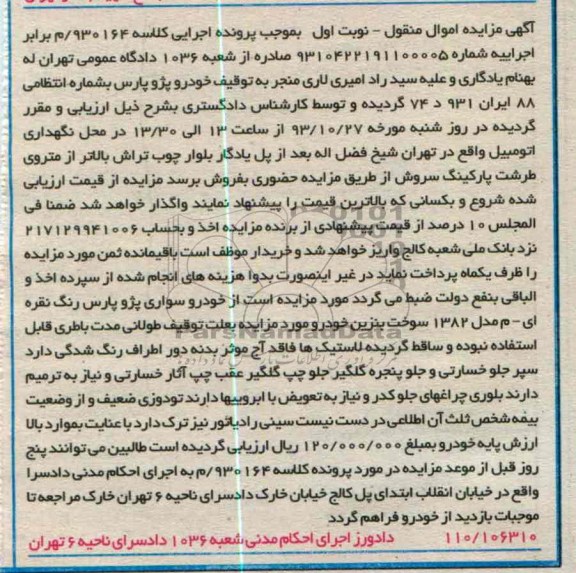 آگهی مزایده اموال منقول - نوبت اول بموجب پرونده اجرایی کلاسه ۹۳۰۱۶۴/م برابر
اجراییه شماره ۹۳۱۰۴۲۲۱۹۱۱۰۰۰۰۵ صادره از شعبه ۱۰۳۶ دادگاه عمومی تهران له
بهنام یادگاری و علیه سید راد امیری لاری منجر به توقیف خودرو پژو پارس بشماره انتظامی
۸۸ ایران ۹۳۱ د ۷۴ گردیده و توسط کارشناس دادگستری بشرح ذیل ارزیابی و مقرر
گردیده در روز شنبه مورخه ۹۳/۱۰/۲۷ از ساعت ۱۳ الی ۱۳/۳۰ در محل نگهداری
اتومبیل واقع در تهران شیخ فضل اله بعد از پل یادگار بلوار چوب تراش بالاتر از متروی
طرشت پارکینگ سروش از طریق مزایده حضوری بفروش برسد مزایده از قیمت ارزیابی
شده شروع و بکسانی که بالاترین قیمت را پیشنهاد نمایند واگذار خواهد شد ضمنا فی
المجلس ۱۰ درصد از قیمت پیشنهادی از برنده مزایده اخذ و بحساب ۲۱۷۱۲۹۹۴۱۰۰۶
نزد بانک ملی شعبه کالج واریز خواهد شد و خریدار موظف است باقیمانده ثمن مورد مزایده
را ظرف یکماه پرداخت نماید در غیر اینصورت بدوا هزینه های انجام شده از سپرده اخذ و
الباقی بنفع دولت ضبط می گردد مورد مزایده است از خودرو سواری پژو پارس رنگ نقره
ای - م مدل ۱۳۸۲ سوخت بنزین خودرو مورد مزایده بعلت توقیف طولانی مدت باطری قابل
استفاده نبوده و ساقط گردیده لاستیک ها فاقد آج موثر بدنه دور اطراف رنگ شدگی دارد
سپر جلو خسارتی و جلو پنجره گلگیر جلو چپ گلگیر عقب چپ آثار خسارتی و نیاز به ترمیم
دارند بلوری چراغهای جلو کدر و نیاز به تعویض با ابروییها دارند تودوزی ضعیف و از وضعیت
بیمه شخص ثلث آن اطلاعی در دست نیست سینی رادیاتور نیز ترک دارد با عنایت بموارد بالا
ارزش پایه خودرو بمبلغ ۱۲۰/۰۰۰/۰۰۰ ریال ارزیابی گردیده است طالبین می توانند پنج
روز قبل از موعد مزایده در مورد پرونده کلاسه ۹۳۰۱۶۴/م به اجرای احکام مدنی دادسرا
واقع در خیابان انقلاب ابتدای پل کالج خیابان خارک دادسرای ناحیه ۶ تهران خارک مراجعه تا
موجبات بازدید از خودرو فراهم گردد
۱۱۰/۱۰۶۳۱۰ دادورز اجرای احکام مدنی شعبه ۱۰۳۶ دادسرای ناحیه ۶ تهران
ParsNamadData